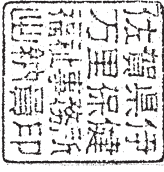 佐賀県伊
万里保健
福祉事務所
出納員印